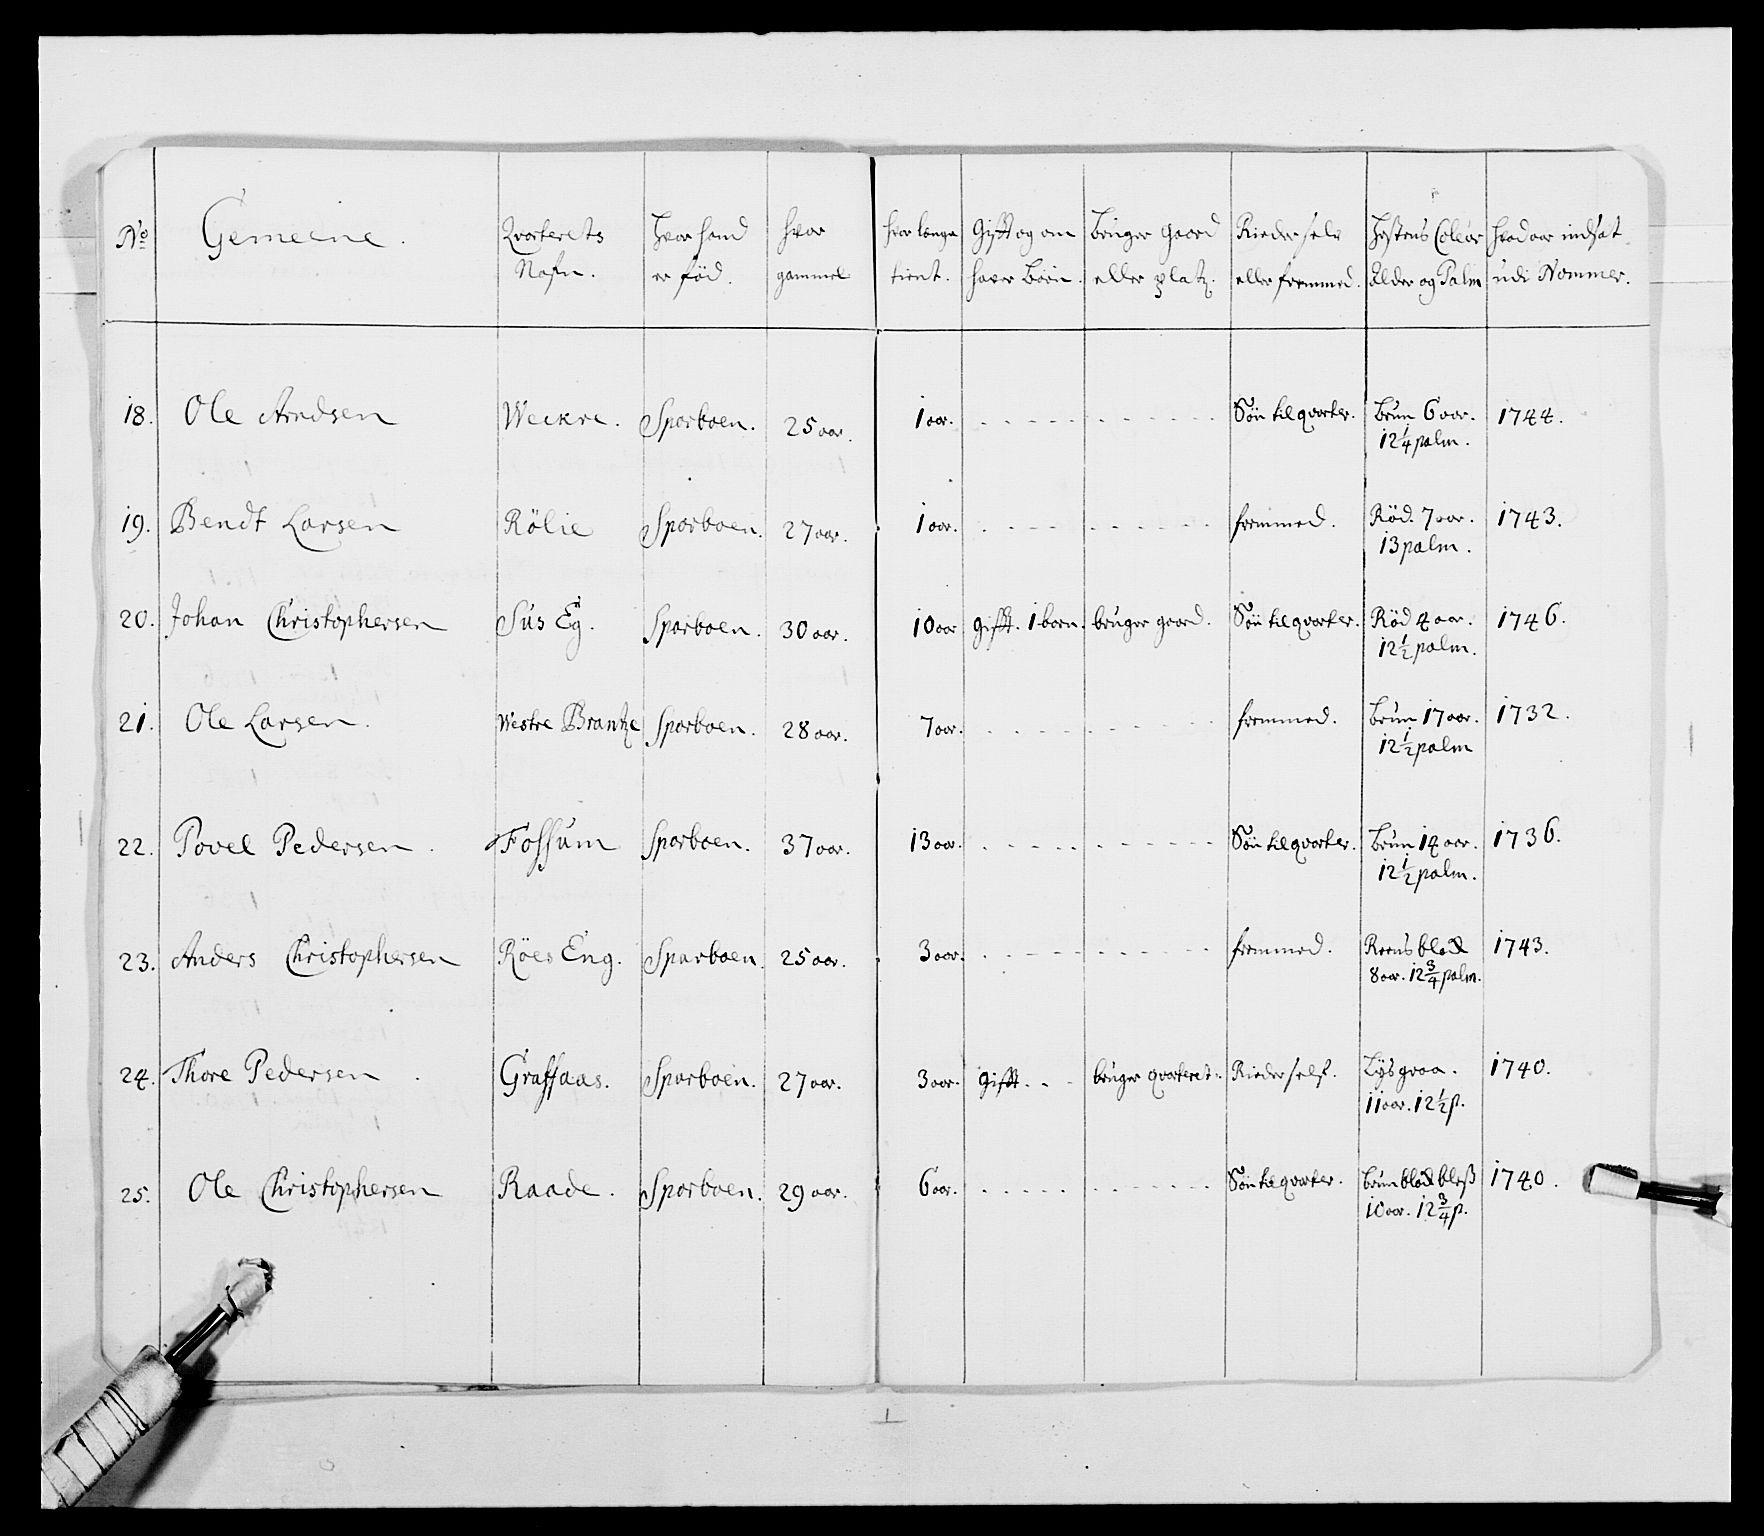 No Gemeine. Qvarterets Nafn. Hvor hand er föd. hvor gammel hvor lenge tient. Gifft og om haver Börn. Bruger gaard eller platz. Rieder selv eller fremmed. Hestens Coleur Alder og Palm hvad aar indsat udi Nommer.
18. Ole Arndsen Weckre. Sparboen. 25 aar. 1 aar. Sön til qvarter. Brun 6 aar. 1744.
12 1/4 palm.
19. Bendt Larsen Rölie Sparboen. 27 aar. 1 aar. fremmed. Röd. 7 aar. 1743.
13 palm.
20. Johan Christophersen Sus Eg. Sparboen. 30 aar. 10 aar gifft. 1 barn. bruger gaard. Sön til qvarter. Röd 4 aar. 1746.
12 1/2 palm.
21. Ole Larsen. Westre Brantze Sparboen. 28 aar. 7 aar. fremmed. Brun 17 aar. 1732.
12 1/2 palm
22. Povel Pedersen. Fossum Sparboen. 37 aar. 13 aar. Sön til qvarter. Brun 14 aar. 1736.
12 1/2 palm.
23. Anders Christophersen Röes Eng. Sparboen. 25 aar. 3 aar. fremmed. black 1743.
8 aar. 12 3/4 palm.
24. Thore Pedersen. Graffaas. Sparboen. 27 aar. 3 aar. gifft. bruger qvarteret. Rieder self. Lysgraa. 1740.
11 aar. 12 1/2 p.
25. Ole Christophersen Raade. Sparboen. 29 aar. 6 aar. Sön til qvarter. brunblacket bless 1740.
10 aar. 12 3/4 p.